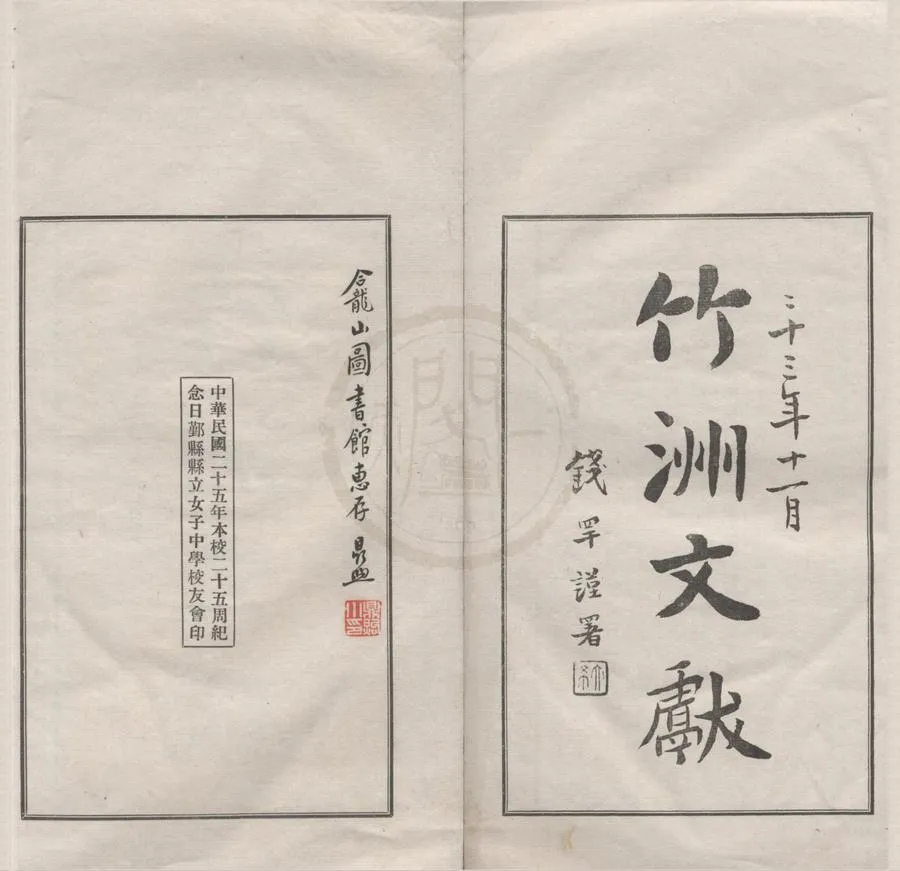 二十三年十一月
竹洲文獻
錢罕謹署
龕山圖書館惠存
中華民國二十五年本校二十五周紀
念日鄞縣縣立女子中學校友會印